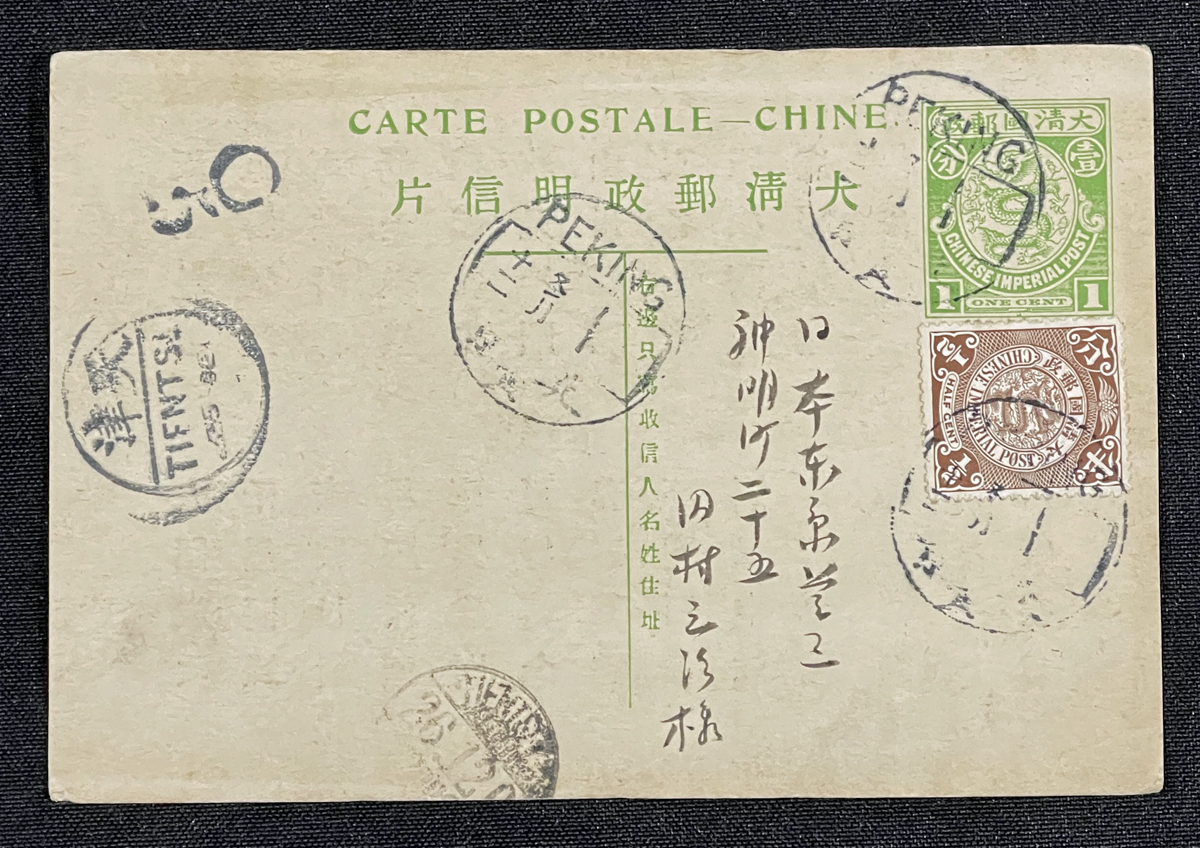 CARTE POSTALE—CHINE.
片信明政郵清大
大清國郵政
壹
分
CHINESE IMPERIAL POST
1 ONE CENT 1
右邊只寫收信人名姓住址
日本東京芝区
神明町二十五
田村三治様
½
HALF CENT
CHINESE IMPERIAL POST
大清國郵政
PEKING
PEKING
天津
TIENTSI
TIENTSI
26.12.0
50